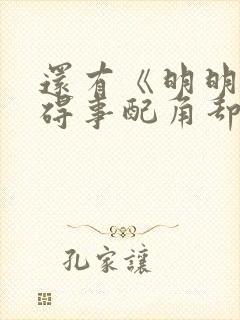 還有《明明
碍事配角却
孔家讓